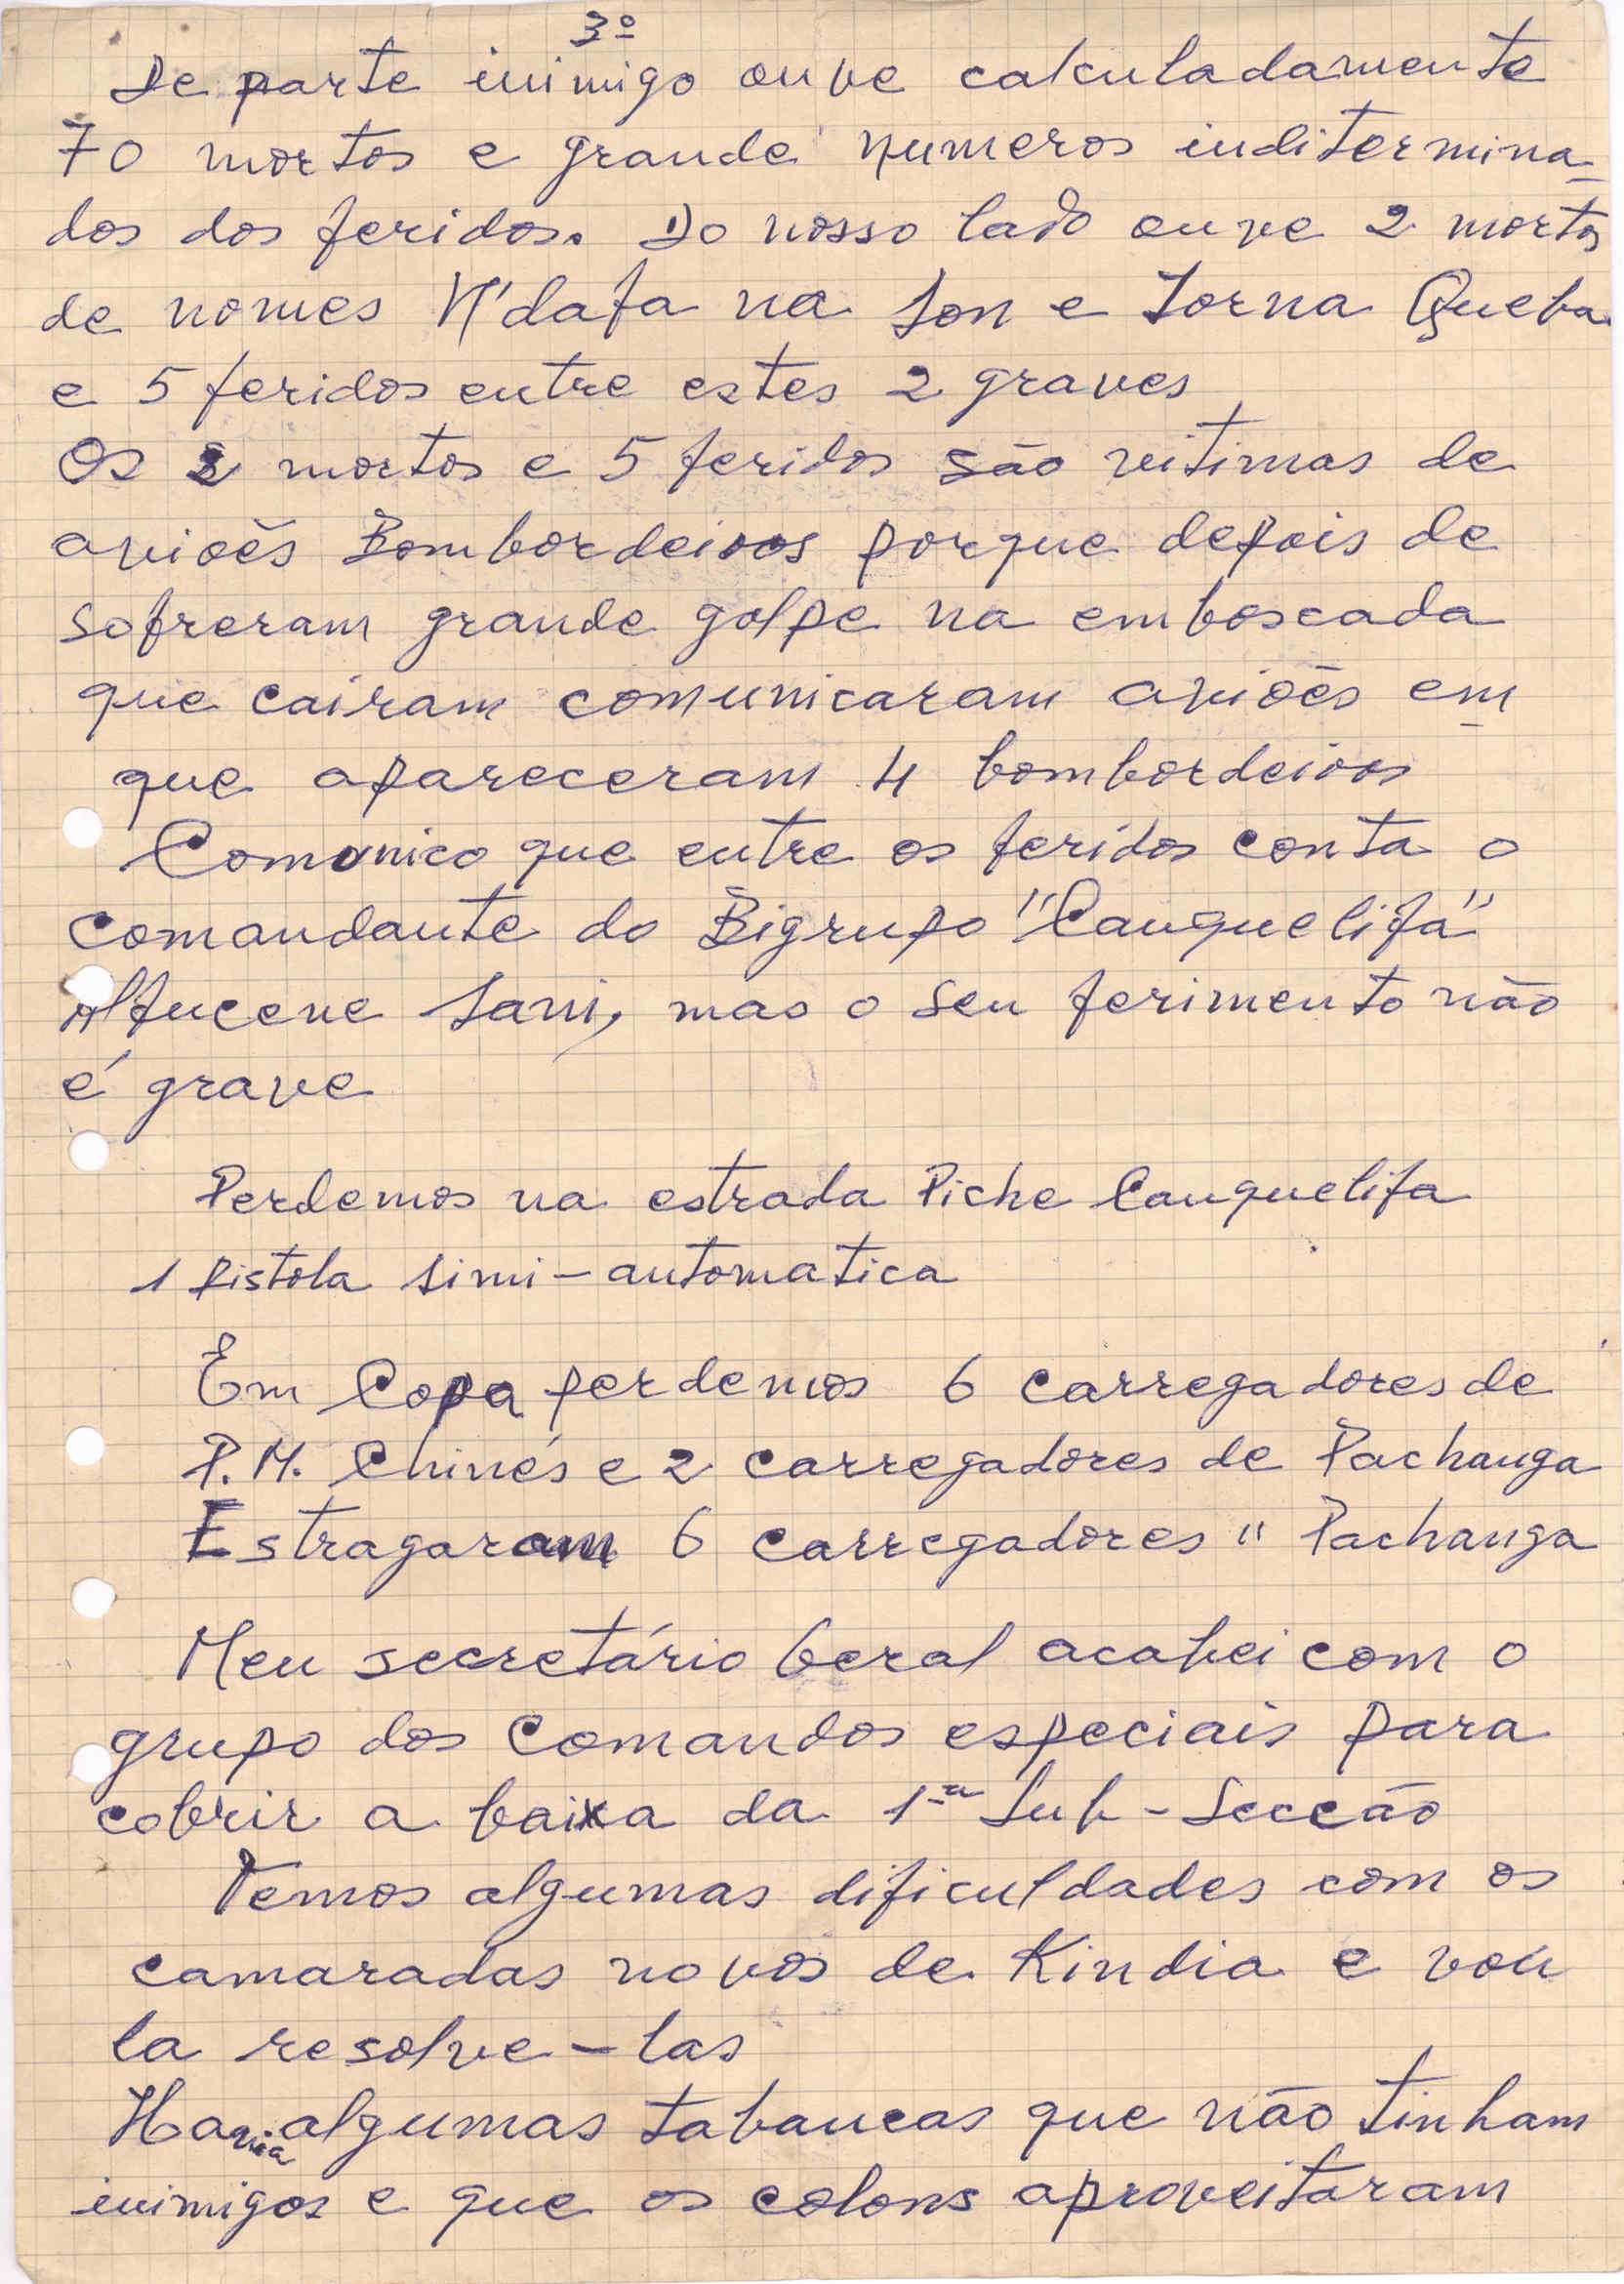 3º
De parte inimigo ouve calculadamente
70 mortos e grande numeros inditermina-
dos dos feridos. Do nosso lado ouve 2 mortos
de nomes N'dafa na Son e Lorna Queba
e 5 feridos entre estes 2 graves
Os 2 mortos e 5 feridos são vitimas de
aviões Bombordeiros porque depois de
sofreram grande golpe na emboscada
que cairam comunicaram aviões em
que apareceram 4 bombordeiros
Comunico que entre os feridos conta o
comandante do Bigrupo "Canquelifa"
Alfucene Sani, mas o seu ferimento não
é grave
Perdemos na estrada Piche Canquelifa
1 pistola simi-automatica
Em Copa perdemos 6 carregadores de
P.M. Chinés e 2 carregadores de Pachanga
Estragaram 6 carregadores " Pachanga
Meu secretário Geral acabei com o
grupo dos comandos especiais para
cobrir a baixa da 1ª Sub-Secção
Temos algumas dificuldades com os
camaradas novos de Kindia e vou
la resolve-las
Havia algumas tabancas que não tinham
inimigos e que os colons aproveitaram